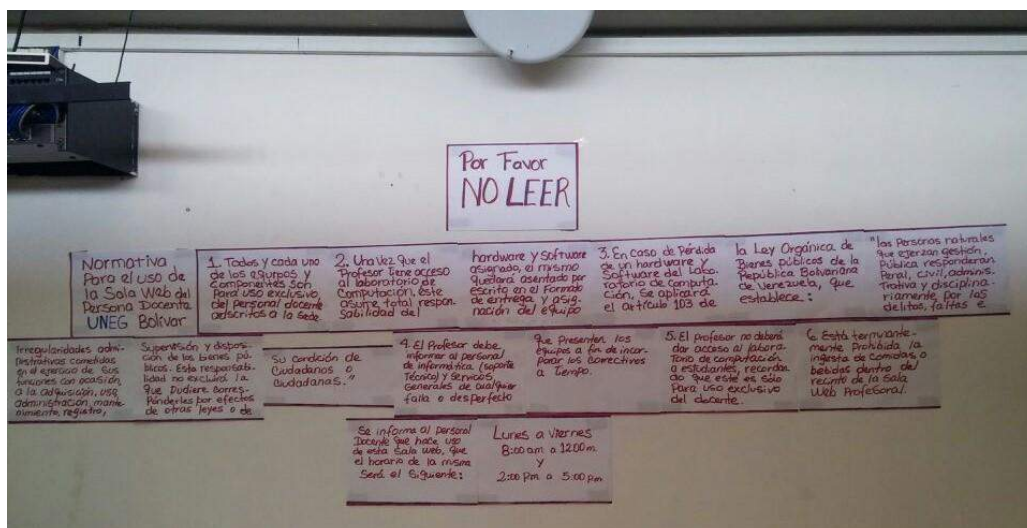 Por Favor
NO LEER
Normativa
Para el uso de
la Sala Web del
Persona Docente
UNEG Bolívar
1. Todos y cada uno
de los equipos y
Componentes Son
Para uso exclusivo,
del personal docente
adscritos a la Sede
2. Una Vez que el
Profesor tiene acceso
al laboratorio de
Computación, este
asume total respon-
sabilidad del
hardware y Software
asignado, el mismo
quedara asentado por
escrito en el Formato
de entrega y asig-
nación del equipo
3. En caso de Pérdida
de un hardware y
Software del Labo-
ratorio de computa-
ción, Se aplicará
el artículo 103 de
la Ley Orgánica de
Bienes Públicos de la
República Bolivariana
de Venezuela, que
establece:
"las Personas naturales
que ejerzan gestión
Pública responderán
Penal, civil, adminis-
Trativa y disciplina-
riamente por los
delitos, faltas e
Irregularidades admi-
nistrativas cometidas
en el ejercicio de Sus
funciones con ocasión
a la adquisición, uso
administración, mante-
nimiento, registro,
Supervisión y disposi-
ción de los bienes pú-
blicos. Esta responsabi-
lidad no excluirá la
que Pudiere corres-
Ponderles por efectos
de otras leyes o de
Su condición de
Ciudadanos o
Ciudadanas."
4. El Profesor debe
informar al personal
de informática (soporte
Técnico) y Servicios
Generales de cualquier
falla o desperfecto
que Presenten los
equipos a fin de incor-
parar los correctivos
a Tiempo.
5. El Profesor no deberá
dar acceso al labora-
Torio de computación
a estudiantes, recordan-
do que este es sólo
Para uso exclusivo
del docente.
6. Está terminante-
mente Prohibida la
ingesta de Comidas o
bebidas dentro del
recinto de la Sala
Web Profesoral.
Se informa al personal
Docente que hace uso
de esta Sala web, que
el horario de la misma
Será el Siguiente:
Lunes a Viernes
8:00 am a 12:00 m
y
2:00 Pm a 5:00 Pm